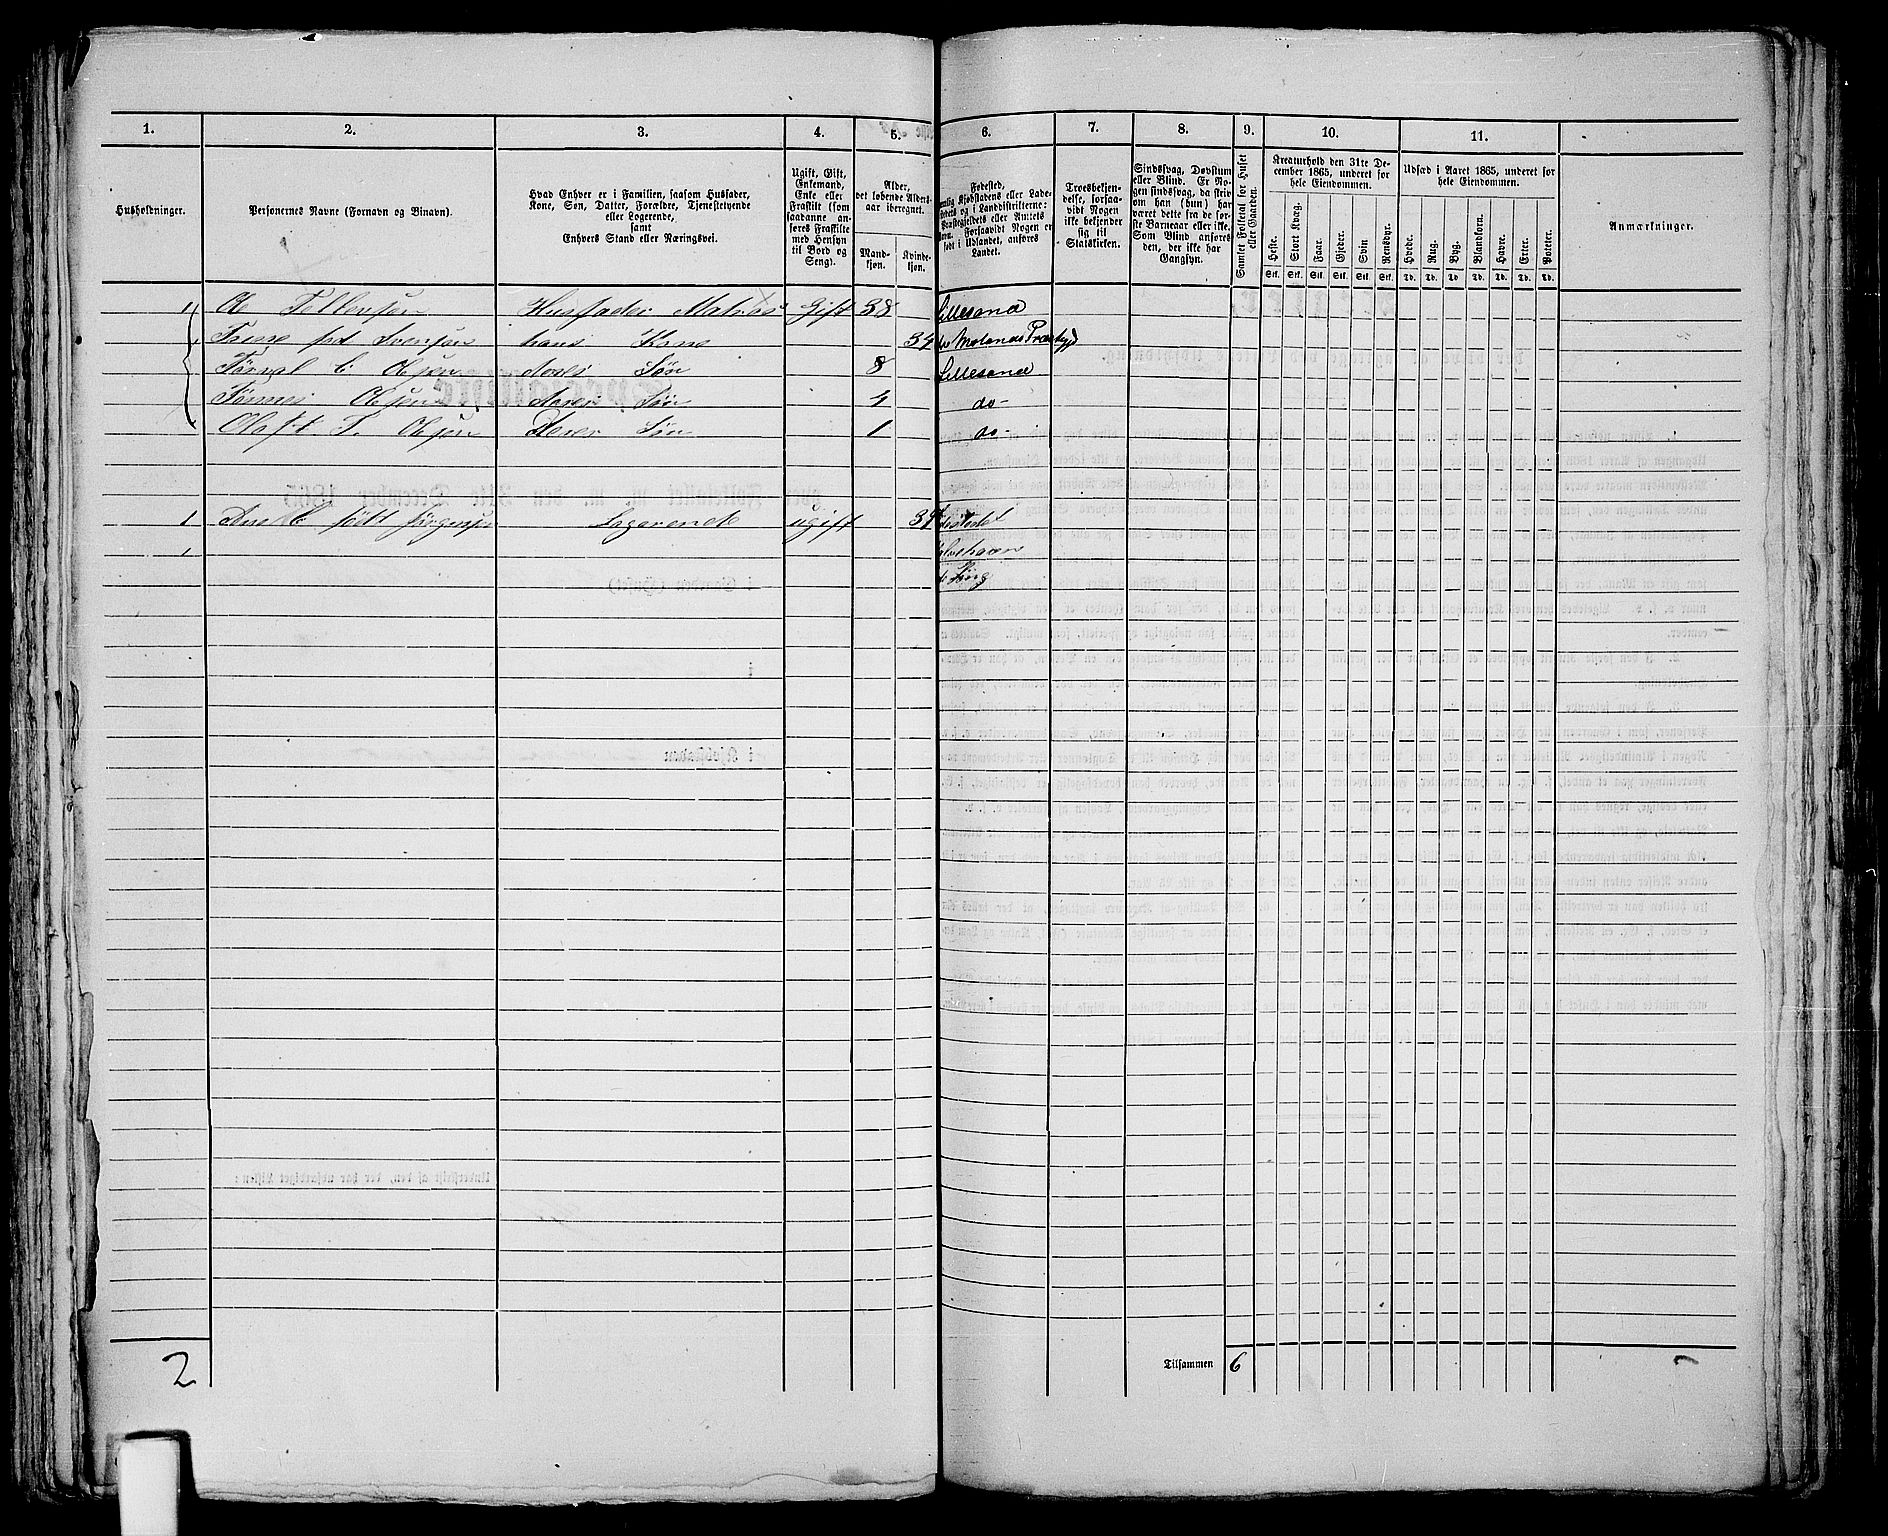 1. 2. 3. 4. 5. 6. 7. 8. 9. 10. 11.
Husholdninger.
Personernes Navne (Fornavn og Binavn).
Hvad Enhver er i Familien, saasom Husfader,
Kone, Søn, Datter, Forældre, Tjenestetyende
eller Logerende,
samt
Enhvers Stand eller Næringsvei.
Ugift, Gift,
Enkemand,
Enke eller
Fraskilt (som
saadanne an-
føres Fraskilte
med Hensyn
til Bord og
Seng).
Alder,
det løbende Alders-
aar iberegnet.
Mand-
kjøn.
Kvinde-
kjøn.
Fødested,
Kjøbstadens eller Lade-
og i Landdistrikterne:
Præstegjeldets eller Amtets
Navn. Forsaavidt Nogen er
født i Udlandet, anføres
Landet.
Troesbekjen-
delse, forsaa-
vidt Nogen
ikke bekjender
sig til
Statskirken.
Sindssvag, Døvstum
eller Blind. Er No-
gen sindssvag, da skriv
om han (hun) har
været dette fra de før-
ste Barneaar eller ikke.
Som Blind anføres
den, der ikke har
Gangsyn.
Samlet Folketal for Huset
eller Gaarden.
Kreaturhold den 31te De-
cember 1865, underet for
hele Eiendommen.
Heste. Stort Kvæg. Faar. Gjeder. Svin Rensdyr.
Stk. Stk. Stk. Stk. Stk. Stk.
Udsæd i Aaret 1865, underet for
hele Eiendommen.
Hvede. Rug. Byg. Blandkorn. Havre. Erter. Poteter.
Td. Td. Td. Td. Td. Td. Td.
Anmærkninger.
1 Ole Tellevsen Husfader Matros Gift 38 Lillesand
født Svensen hans Kone 34 Molands Præstegj
C. Olsen deres Søn 8 Lillesand
Olsen deres Søn 4 do-
Olaf T. Olsen deres Søn 1 do-
1 Ane født Jørgensen Logerende ugift 39
Tilsammen 6
2